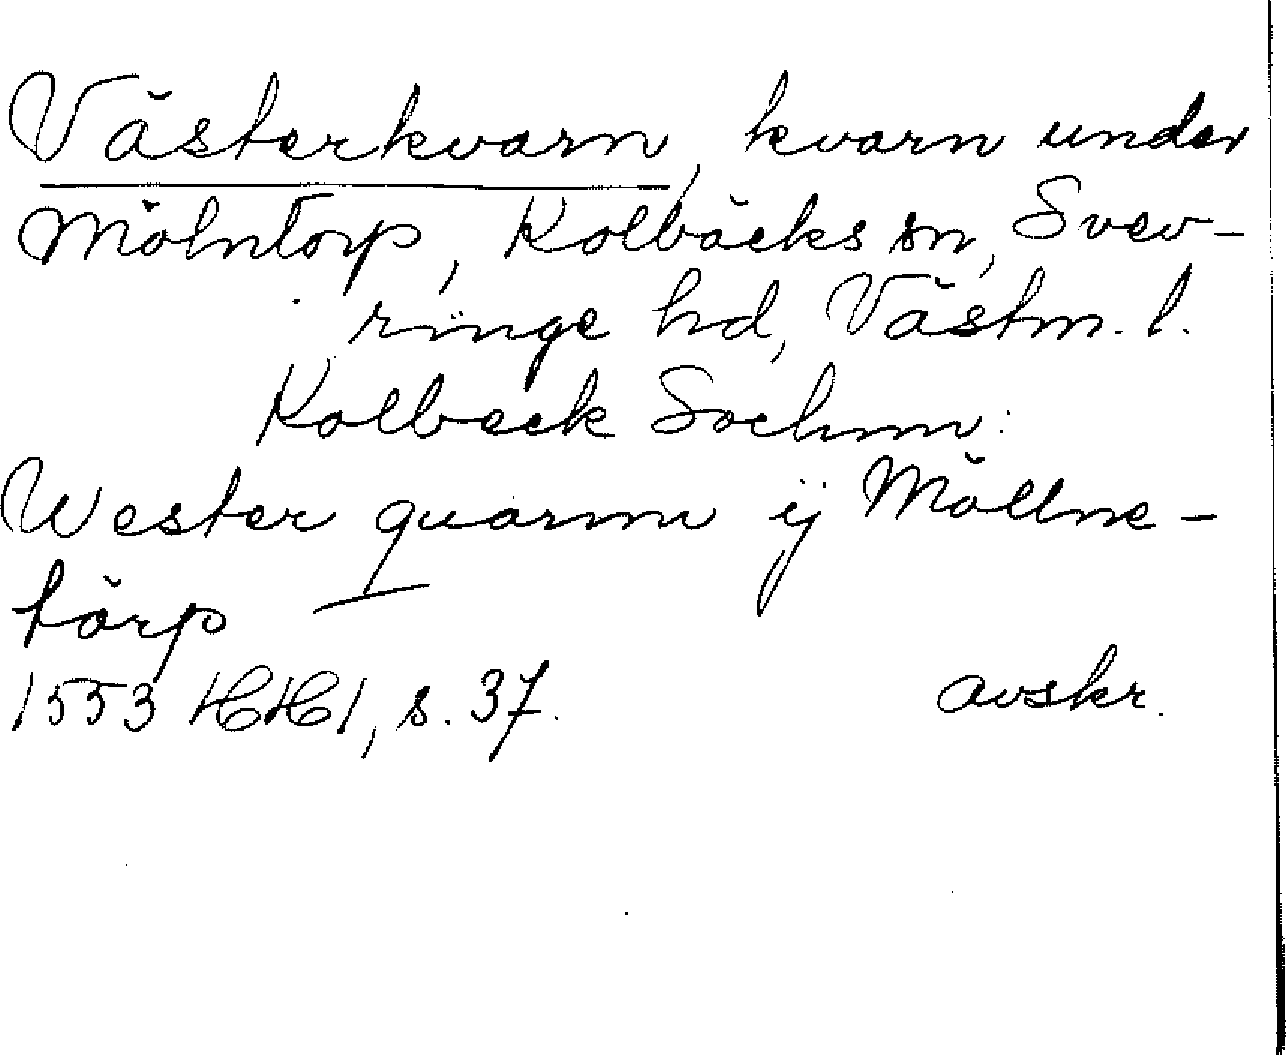 Västerkvarn, kvarn under
Mölntorp, Kolbäcks sn, Snev-
ringe hd, Västm. l.
Kolbeck Sochnn:
Wester quarnn ÿ Möllne-
törp
1553 HH1, s. 37. avskr.